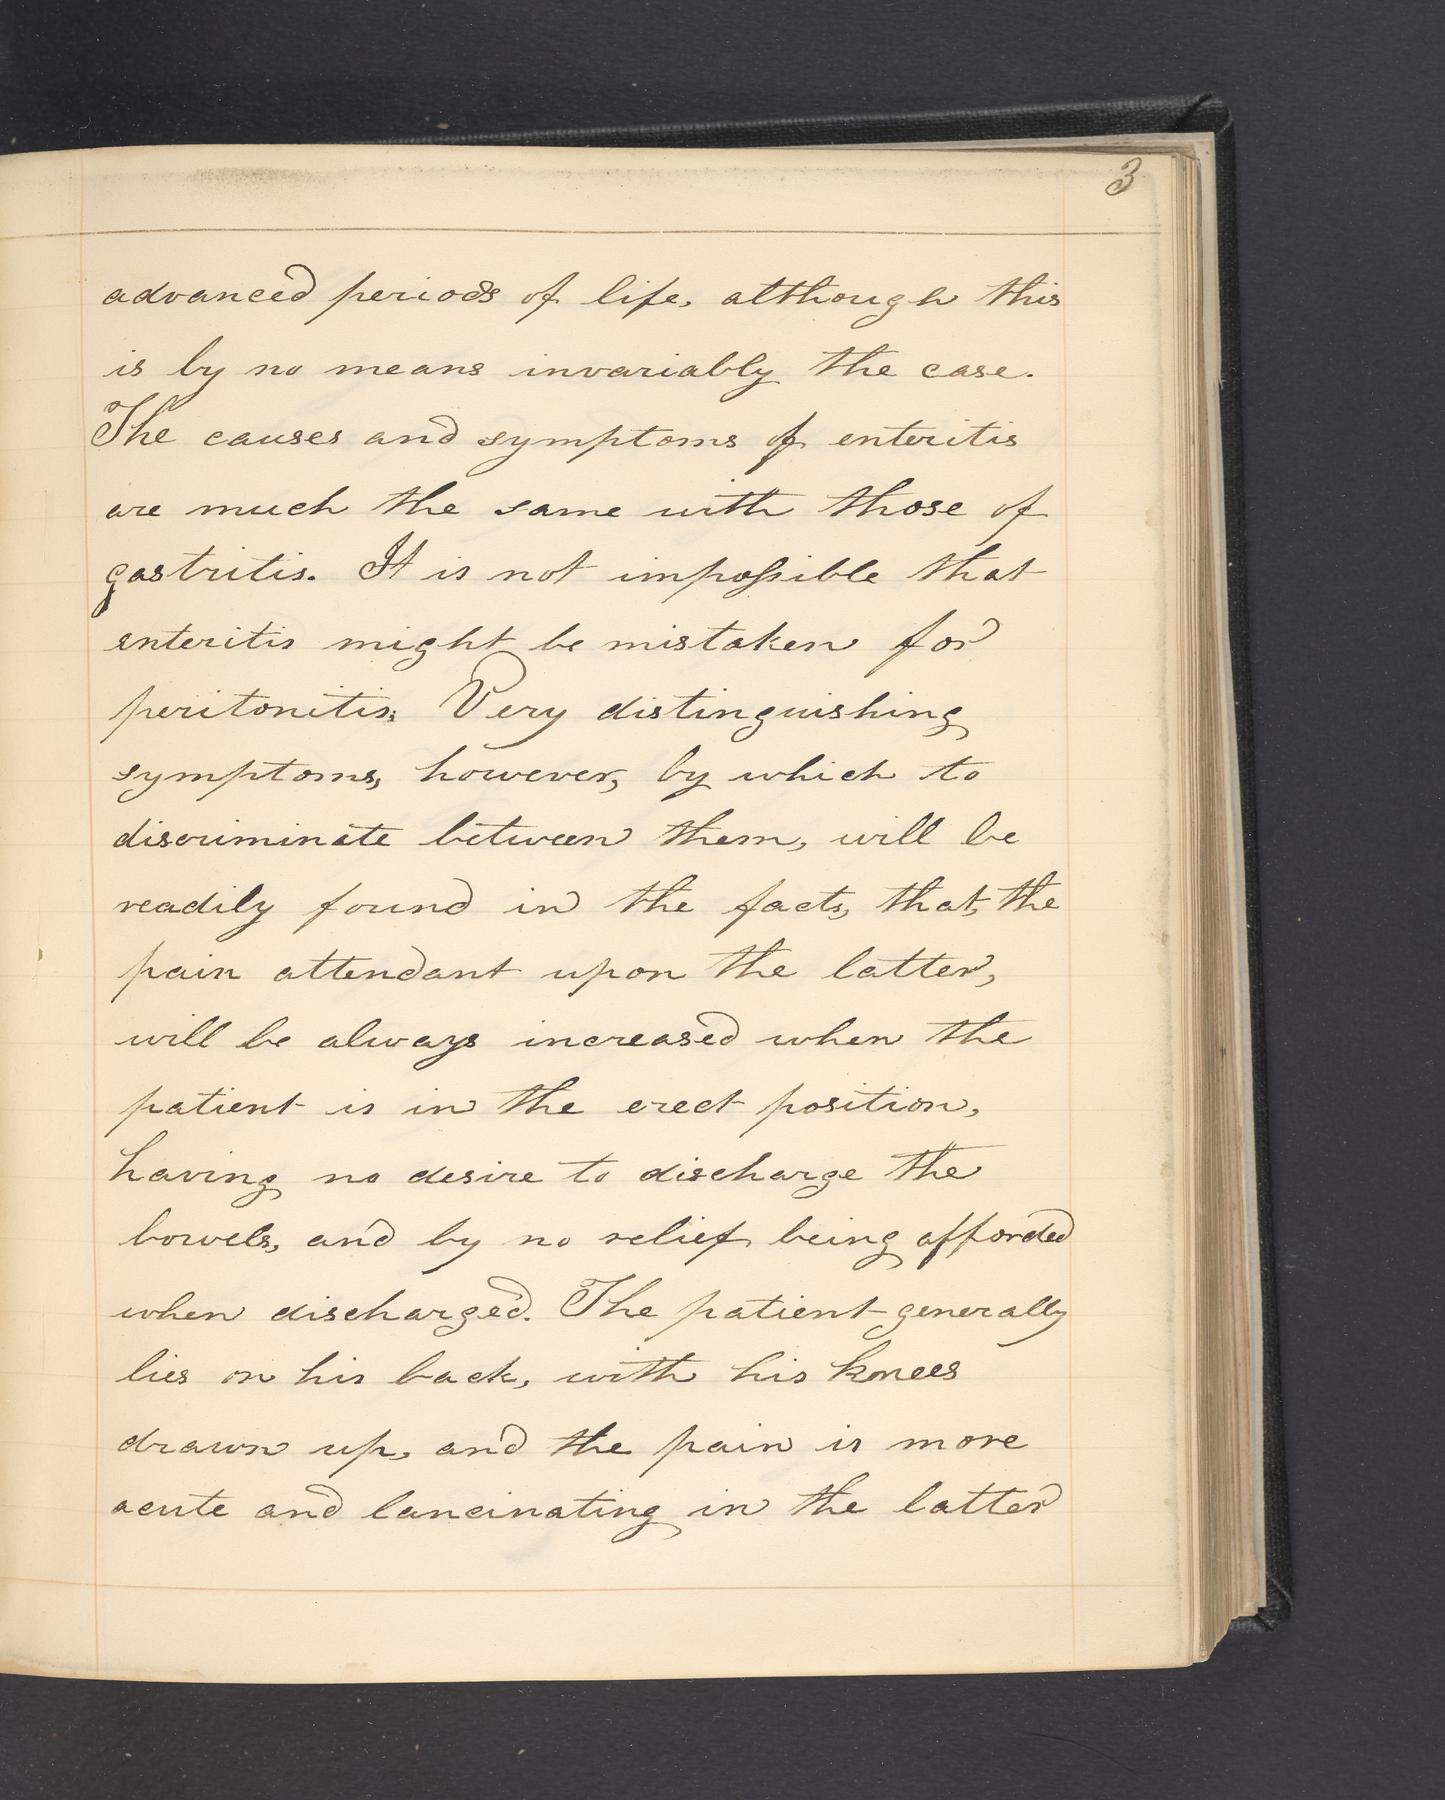 3
advanced periods of life, although this
is by no means invariably the case.
The causes and symptoms of enteritis
are much the same with those of
gastritis. It is not impossible that
enteritis might be mistaken for
peritonitis; Very distinguishing
symptoms, however, by which to
discriminate between them, will be
readily found in the facts, that, the
pain attendant upon the latter,
will be always increased when the
patient is in the erect position,
having no desire to discharge the
bowels, and by no relief being afforded
when discharged. The patient generally
lies on his back, with his knees
drawn up, and the pain is more
acute and lancinating in the latter